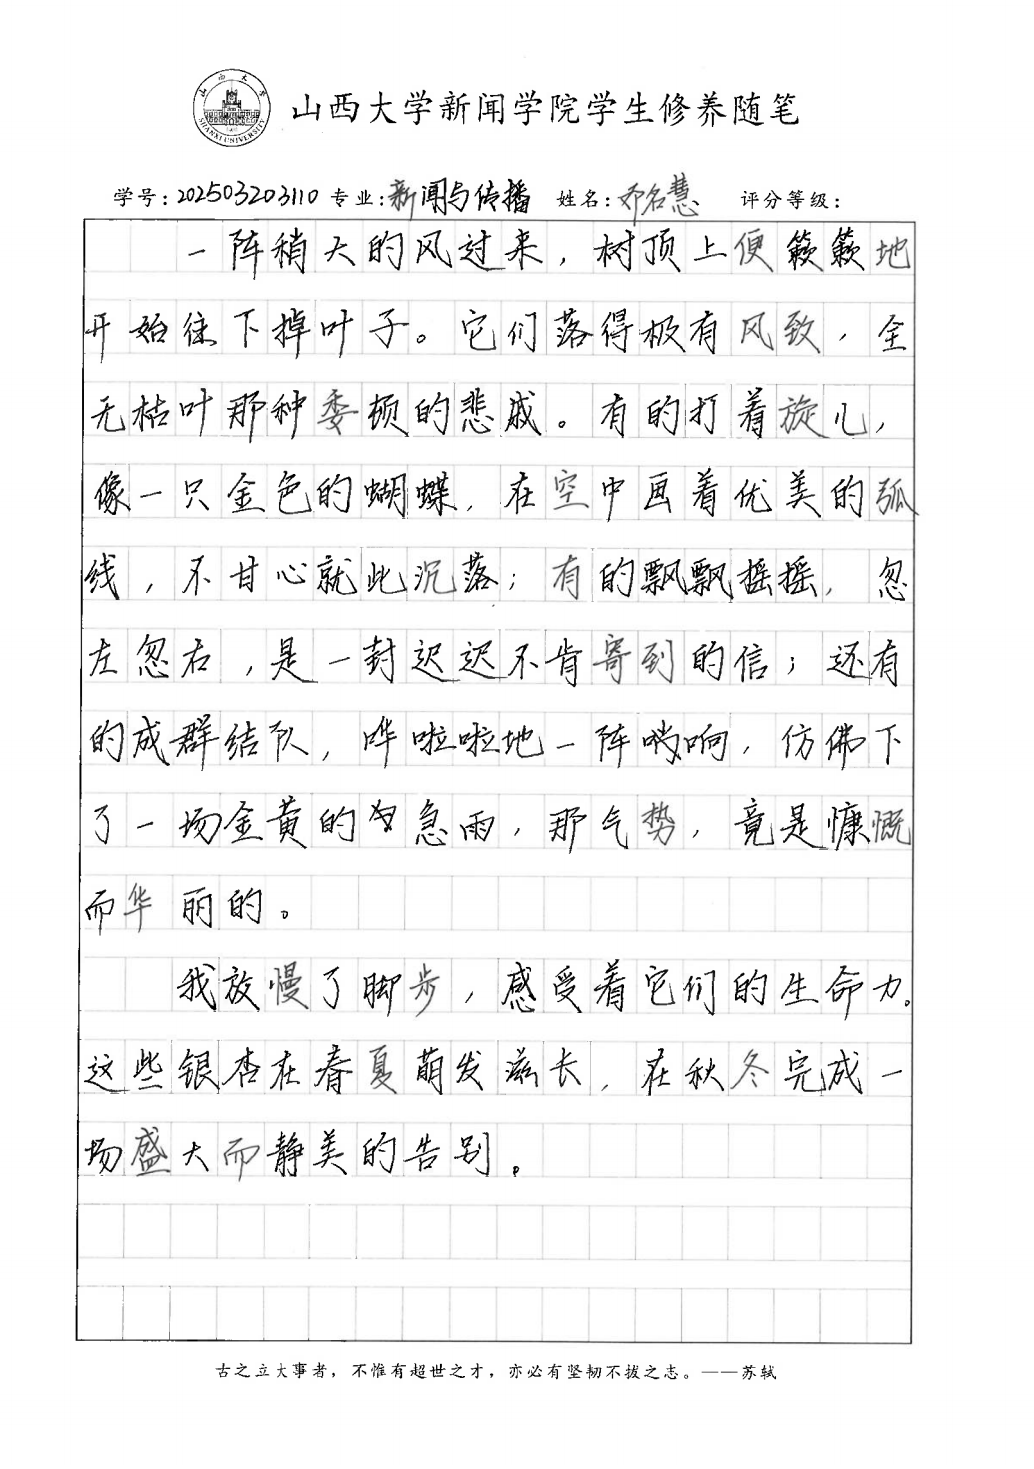 山西大学
SHANXI UNIVERSITY
1902
山西大学新闻学院学生修养随笔
学号：202503203110 专业：新闻与传播 姓名：邓名慧 评分等级：
一阵稍大的风过来，树顶上便簌簌地
开始往下掉叶子。它们落得极有风致，全
无枯叶那种委顿的悲戚。有的打着旋儿，
像一只金色的蝴蝶，在空中画着优美的弧
线，不甘心就此沉落；有的飘飘摇摇，忽
左忽右，是一封迟迟不肯寄到的信；还有
的成群结队，哗啦啦地一阵哨响，仿佛下
了一场金黄的急雨，那气势，竟是慷慨
而华丽的。
我放慢了脚步，感受着它们的生命力。
这些银杏在春夏萌发滋长，在秋冬完成一
场盛大而静美的告别。
古之立大事者，不惟有超世之才，亦必有坚韧不拔之志。——苏轼